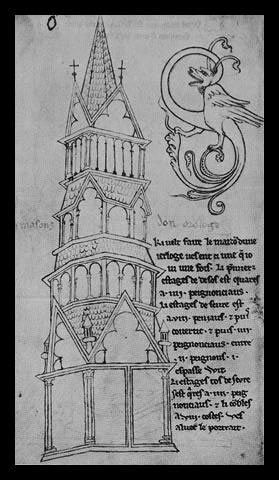 maisons don orologe
Ki velt faire le maizo dune
ierloge vesent ci une q io
vi une fois. Li p'miers
estages de desos est quares
a .iiii. peignonciaus.
Li estages de seure est
a .viii. peniaus. ⁊ puis
covertic. ⁊ puis .iiii.
peignonciaus. entre
.ii. peignons .i.
espasse vuit.
Li estages tos de seure
sest qres a .iiii. peig
nonciaus. ⁊ li cobles
a .viii. costes. ves
aluec le portrait.